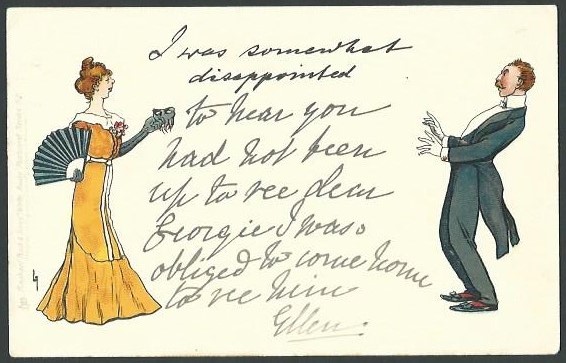 I was somewhat
disappointed
to hear you
had not been
up to see dear
Georgie I was
obliged to come home
to see him
Ellen.